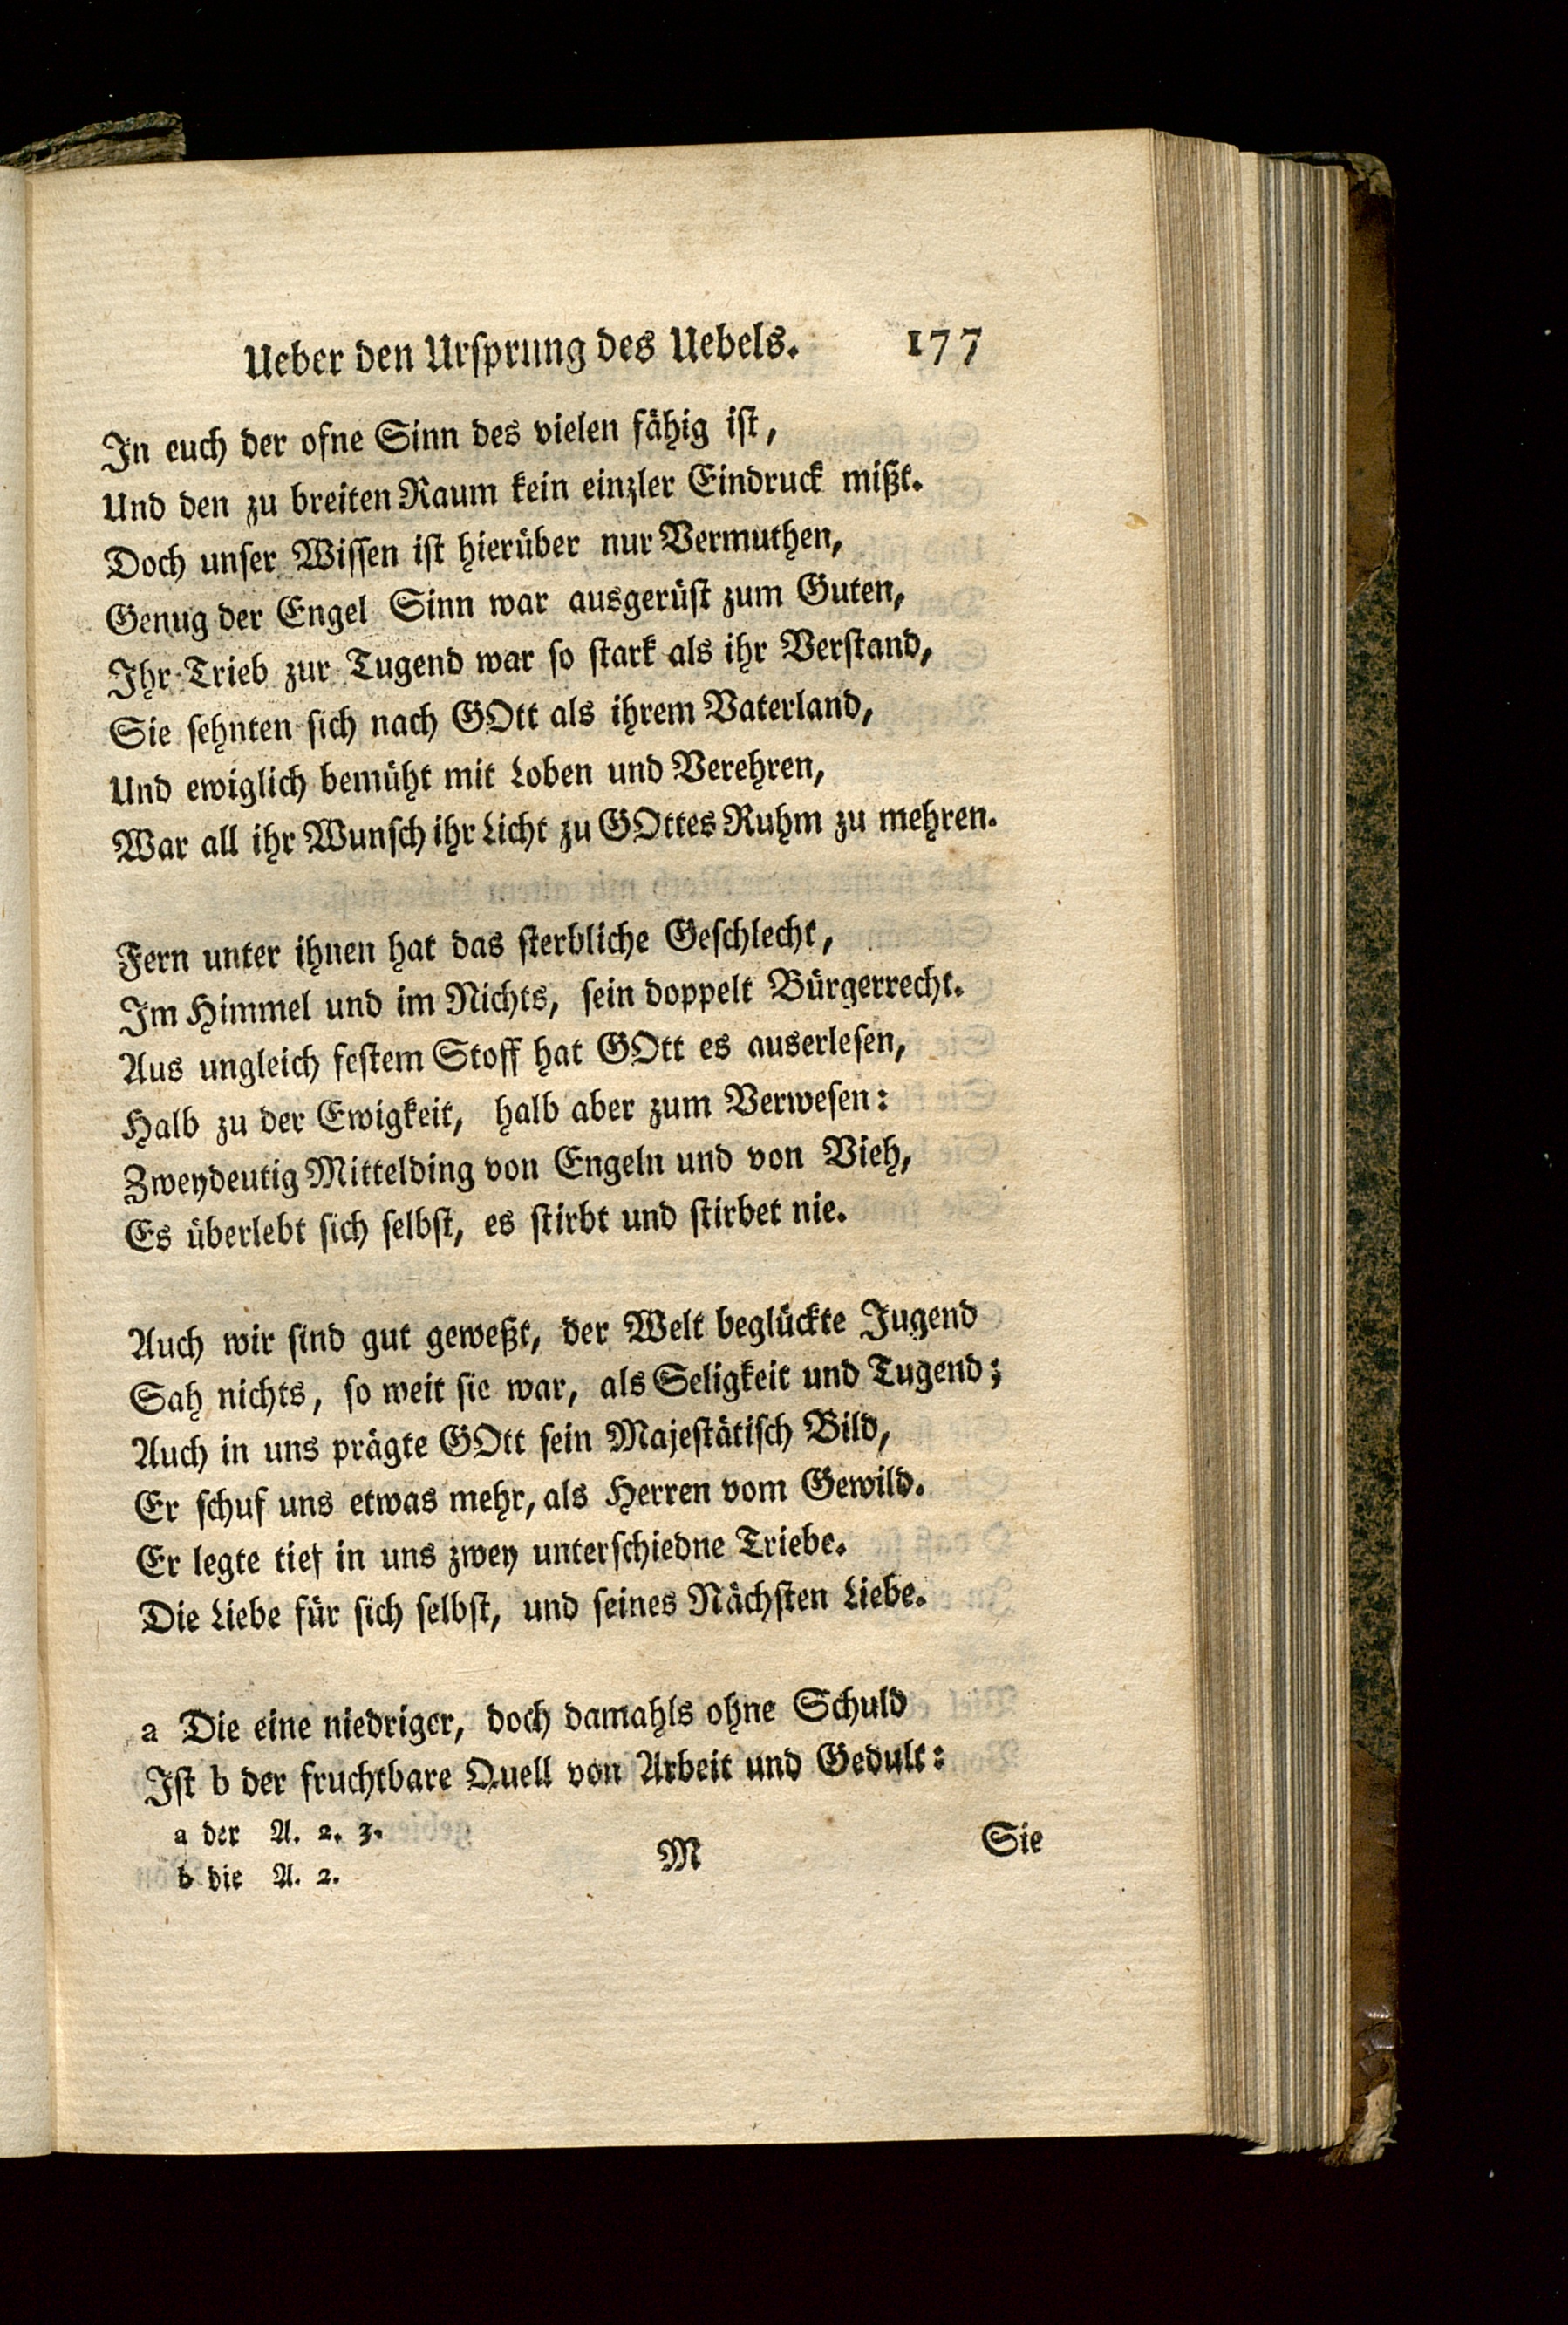 Ueber den Ursprung des Uebels. 177
In euch der ofne Sinn des vielen fähig ist,
Und den zu breiten Raum kein einzler Eindruck mißt.
Doch unser Wissen ist hierüber nur Vermuthen,
Genug der Engel Sinn war ausgerüst zum Guten,
Ihr Trieb zur Tugend war so stark als ihr Verstand,
Sie sehnten sich nach GOtt als ihrem Vaterland,
Und ewiglich bemüht mit Loben und Verehren,
War all ihr Wunsch ihr Licht zu GOttes Ruhm zu mehren.
Fern unter ihnen hat das sterbliche Geschlecht,
Im Himmel und im Nichts, sein doppelt Bürgerrecht.
Aus ungleich festem Stoff hat GOtt es auserlesen,
Halb zu der Ewigkeit, halb aber zum Verwesen:
Zweydeutig Mittelding von Engeln und von Vieh,
Es überlebt sich selbst, es stirbt und stirbet nie.
Auch wir sind gut geweßt, der Welt beglückte Jugend
Sah nichts, so weit sie war, als Seligkeit und Tugend;
Auch in uns prägte GOtt sein Majestätisch Bild,
Er schuf uns etwas mehr, als Herren vom Gewild.
Er legte tief in uns zwey unterschiedne Triebe.
Die Liebe für sich selbst, und seines Nächsten Liebe.
a Die eine niedriger, doch damahls ohne Schuld
Ist b der fruchtbare Quell von Arbeit und Gedult:
a der A. 2. 3.
b die A. 2.
M
Sie